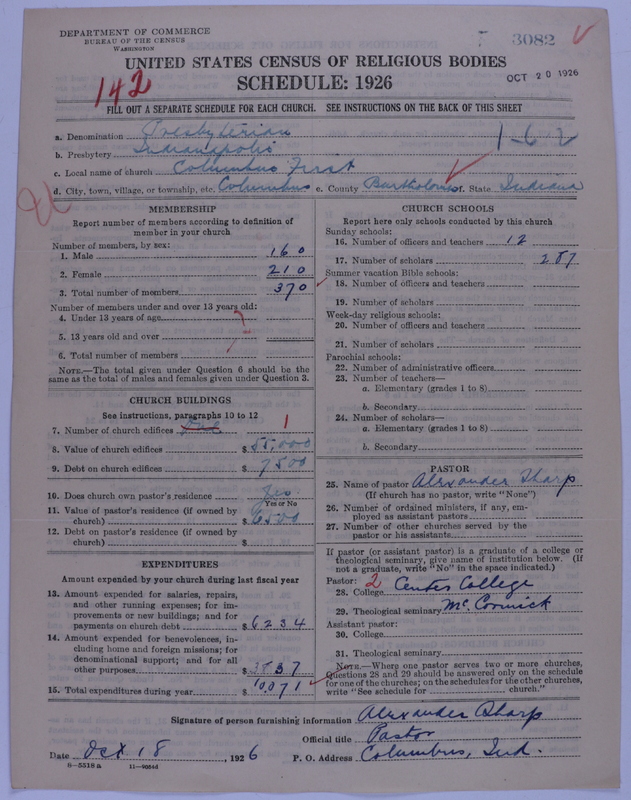 DEPARTMENT OF COMMERCE
BUREAU OF THE CENSUS
WASHINGTON
3082
UNITED STATES CENSUS OF RELIGIOUS BODIES
SCHEDULE: 1926
OCT 20 1926
142
FILL OUT A SEPARATE SCHEDULE FOR EACH CHURCH. SEE INSTRUCTIONS ON THE BACK OF THIS SHEET
a. Denomination Presbyterian
1-6-2
b. Presbytery Indianapolis
c. Local name of church Columbus First
d. City, town, village, or township, etc. Columbus e. County Bartholomew f. State Indiana
MEMBERSHIP
Report number of members according to definition of member in your church
Number of members, by sex:
1. Male 160
2. Female 210
3. Total number of members 370
Number of members under and over 13 years old:
4. Under 13 years of age
5. 13 years old and over
6. Total number of members
NOTE.—The total given under Question 6 should be the same as the total of males and females given under Question 3.
CHURCH BUILDINGS
See instructions, paragraphs 10 to 12
7. Number of church edifices One 1
8. Value of church edifices $ 55,000
9. Debt on church edifices $ 7500
10. Does church own pastor's residence Yes
Yes or No
11. Value of pastor's residence (if owned by church) $ 6500
12. Debt on pastor's residence (if owned by church) $
EXPENDITURES
Amount expended by your church during last fiscal year
13. Amount expended for salaries, repairs, and other running expenses; for improvements or new buildings; and for payments on church debt $ 6234
14. Amount expended for benevolences, including home and foreign missions; for denominational support; and for all other purposes $ 3837
15. Total expenditures during year $ 10071
CHURCH SCHOOLS
Report here only schools conducted by this church
Sunday schools:
16. Number of officers and teachers 12
17. Number of scholars 287
Summer vacation Bible schools:
18. Number of officers and teachers
19. Number of scholars
Week-day religious schools:
20. Number of officers and teachers
21. Number of scholars
Parochial schools:
22. Number of administrative officers
23. Number of teachers—
a. Elementary (grades 1 to 8)
b. Secondary
24. Number of scholars—
a. Elementary (grades 1 to 8)
b. Secondary
PASTOR
25. Name of pastor Alexander Sharp
(If church has no pastor, write "None")
26. Number of ordained ministers, if any, employed as assistant pastors
27. Number of other churches served by the pastor or his assistants
If pastor (or assistant pastor) is a graduate of a college or theological seminary, give name of institution below. (If not a graduate, write "No" in the space indicated.)
Pastor: 2
28. College Center College
29. Theological seminary McCormick
Assistant pastor:
30. College
31. Theological seminary
NOTE.—Where one pastor serves two or more churches, Questions 28 and 29 should be answered only on the schedule for one of the churches; on the schedules for the other churches, write "See schedule for church."
Signature of person furnishing information Alexander Sharp
Official title Pastor
Date Oct 18, 1926 P. O. Address Columbus, Ind.
8-5518a 11-9084d